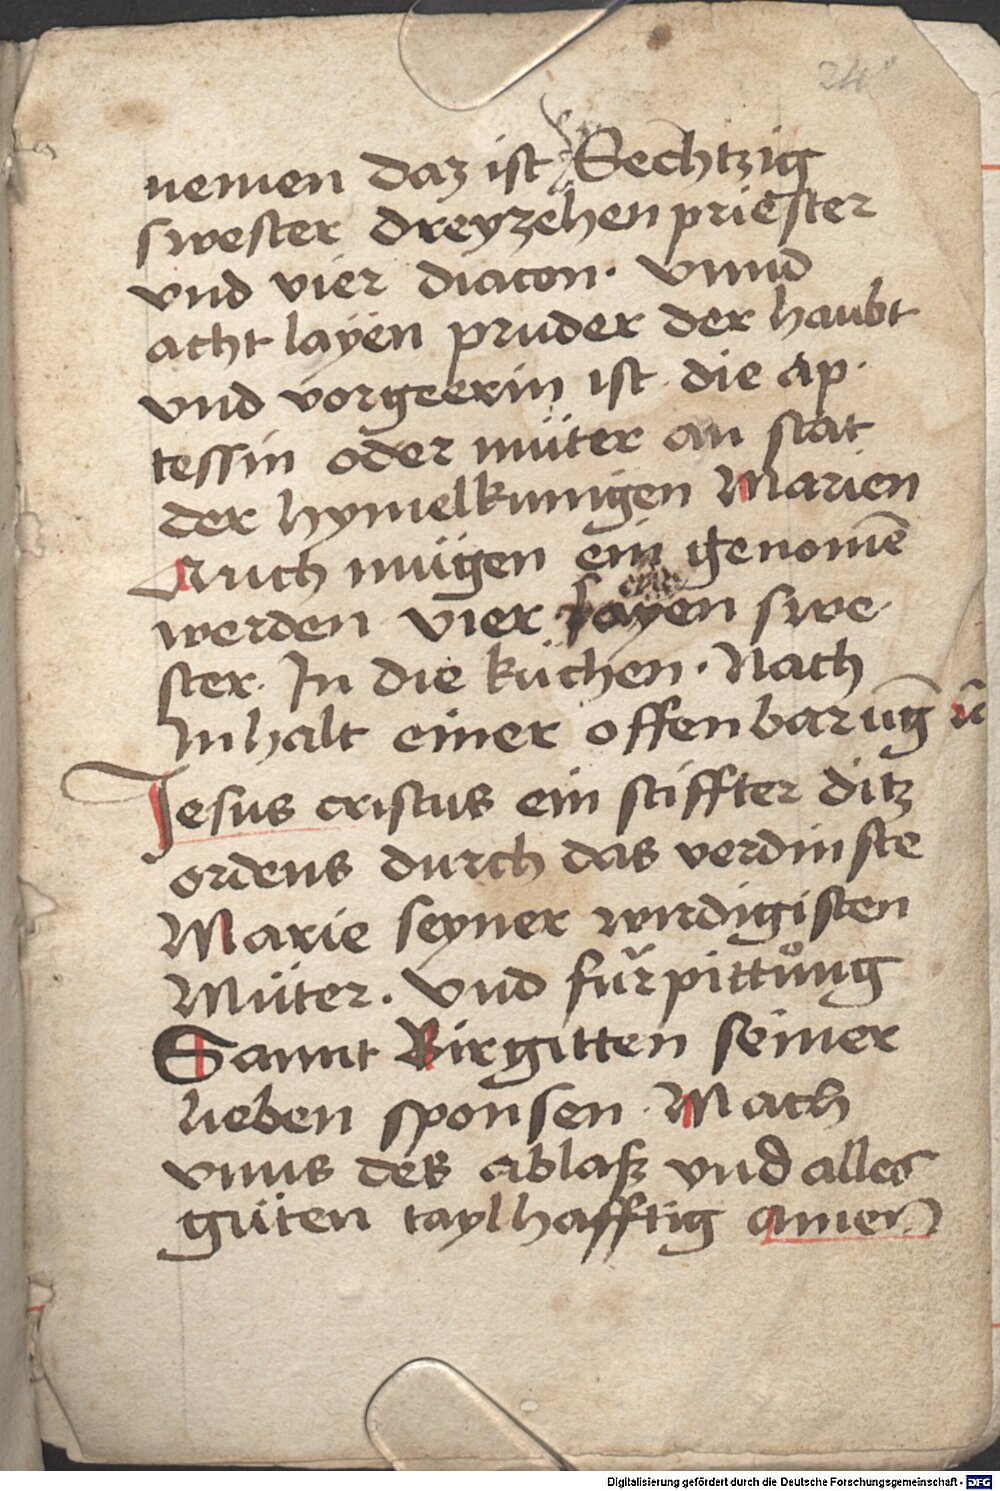 24
nemen daz ist Sechtzig
swester dreyzehen priester
vnd vier diacon. vnnd
acht layen pruder der haubt
vnd vorgeerin ist die ap
tessin oder müter an stat
der hymelkunigen Marien
Auch mügen ein genomē
werden vier layen swe
ster. In die küchen. Nach
Inhalt einer offenbarūg
Jesus cristus ein stiffter ditz
ordens durch das verdinste
Marie seyner wirdigisten
Müter. vnd fürpittůng
Sannt Birgitten seiner
lieben sponsen. Mach
vnns des ablasz vnd alles
güten taylhafftig amen
Digitalisierung gefördert durch die Deutsche Forschungsgemeinschaft - DFG